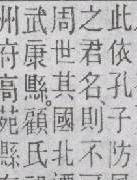 此依孔子防
之君名、則不
周世其國北
武康縣。顧氏
州府高苑縣